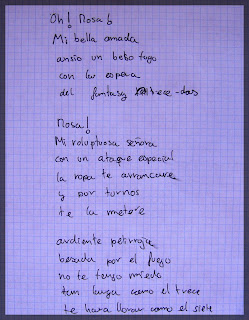 Oh! Rosa!
Mi bella amada
ansio un beso tuyo
con la espera
del fantasy trece-dos
Rosa!
Mi voluptuosa señora
con un ataque espacial
la ropa te arrancare
y por turnos
te la metere
ardiente petirroja
besada por el fuego
no te tengo miedo
tan larga como el trece
te hara llorar como el siete